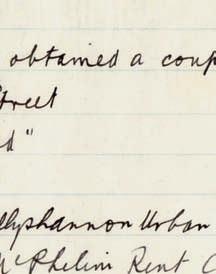 obtained a coup
treet
d"
llyshannon Urban
McPhelim Rent